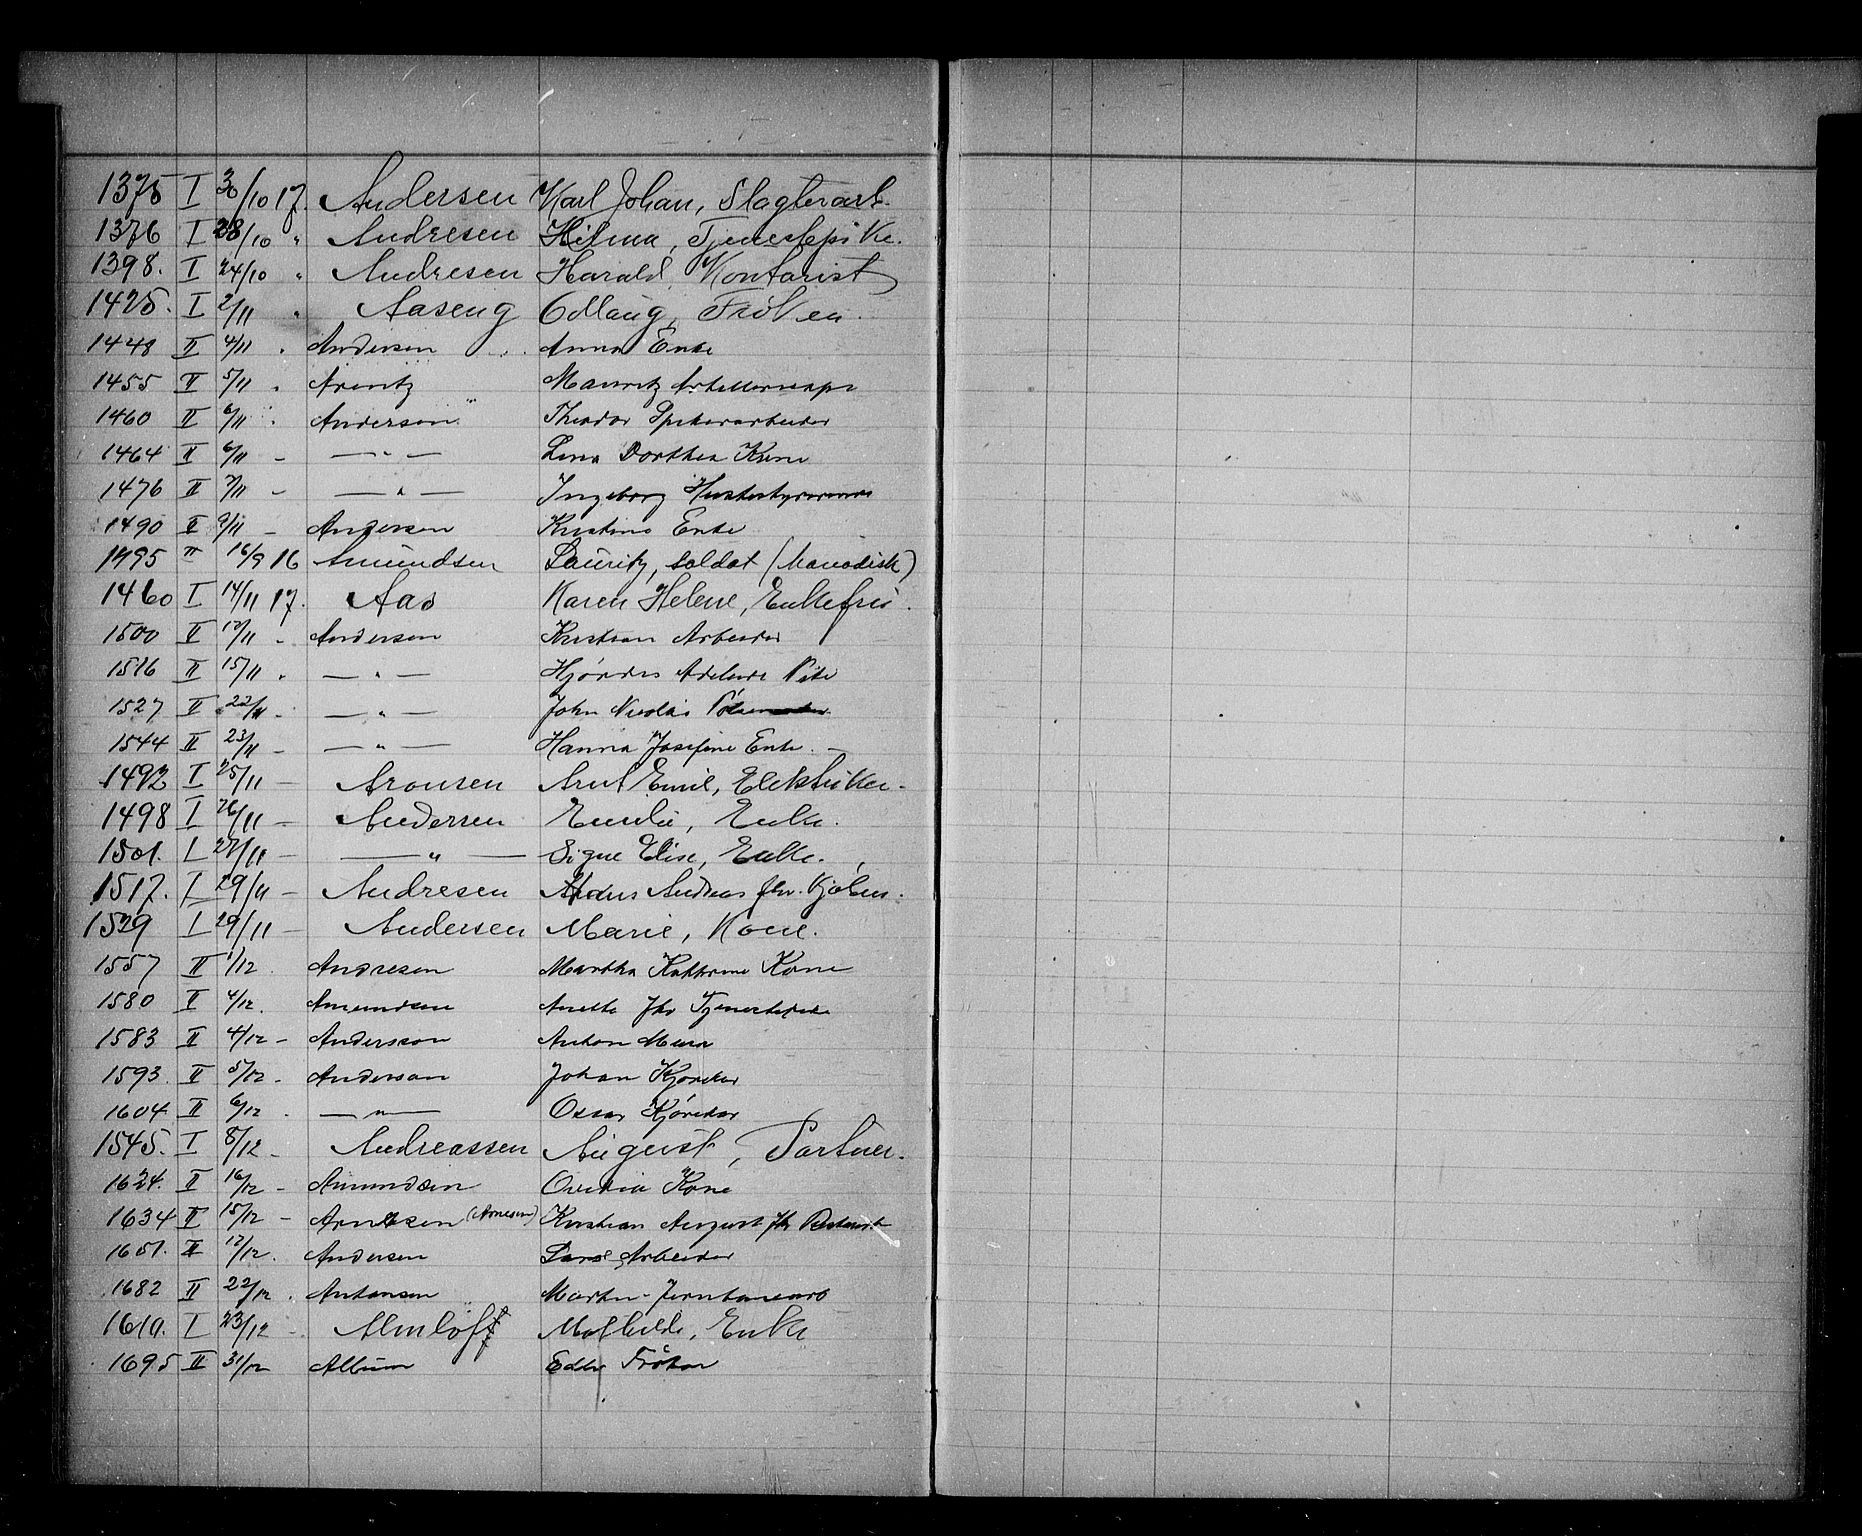 1375 I 30/10 17. Andersen Karl Johan, Slagterarb.
1376 I 28/10 " Andresen Hilma, Tjenestepike.
1398. I 24/10 " Andresen Harald, Kontorist
1425. I 2/11 " Aaseng Odlaug, Frøken.
1448 II 4/11 " Andersen Anna Enke
1455 II 5/11 " Arentz Mauritz
1460 II 6/11 " Andersen Theodor
1464 II 6/11 - —"— Lina Dorthea Kone
1476 II 7/11 - —"— Ingeborg Husbestyrerinne
1490 II 9/11 - Andersen Kristine Enke
1495 II 16/9 16 Amundsen Lauritz, soldat
1460 I 14/11 17. Aas Karen Helene, Enkefru.
1500 II 12/11 - Andersen Kristian Arbeider
1516 II 15/11 " —"— Hjördis Adelheide Pike
1527 II 22/11 - —"— John Nicolai
1544 II 23/11 - —"— Hanna Josefine Enke. —
1492 I 25/11 — Aronsen Arnt Emil, Elektriker.
1498 I 26/11 — Andersen Emilie, Enke.
1501. I 27/11 — —"— Signe Elise, Enke.
1517. I 29/11 — Andresen Andreas fhv.
1529 I 29/11 — Andersen Marie, Kone.
1557 II 1/12. Andresen Martha Kathrine Kone
1580 II 4/12. Amundsen Anette fhv Tjenestepike
1583 II 4/12 - Andersson Anton Murer
1593. II 5/12 - Anderson Johan Kjørekar
1604 II 6/12. —"— Oscar Kjörekar
1545. I 8/12 - Andreassen August, Portner.
1624. II 16/12 - Amundsen Ovidia Kone
1634 II 15/12 - Arntsen (Arnesen) Kristian August fhv
1651. II 12/12. Andersen Lars Arbeider
1682 II 22/12. Antonsen Martin
1610. I 23/12 - Almlöff Mathilde, Enke
1695 II 31/12 Album Edle Fröken